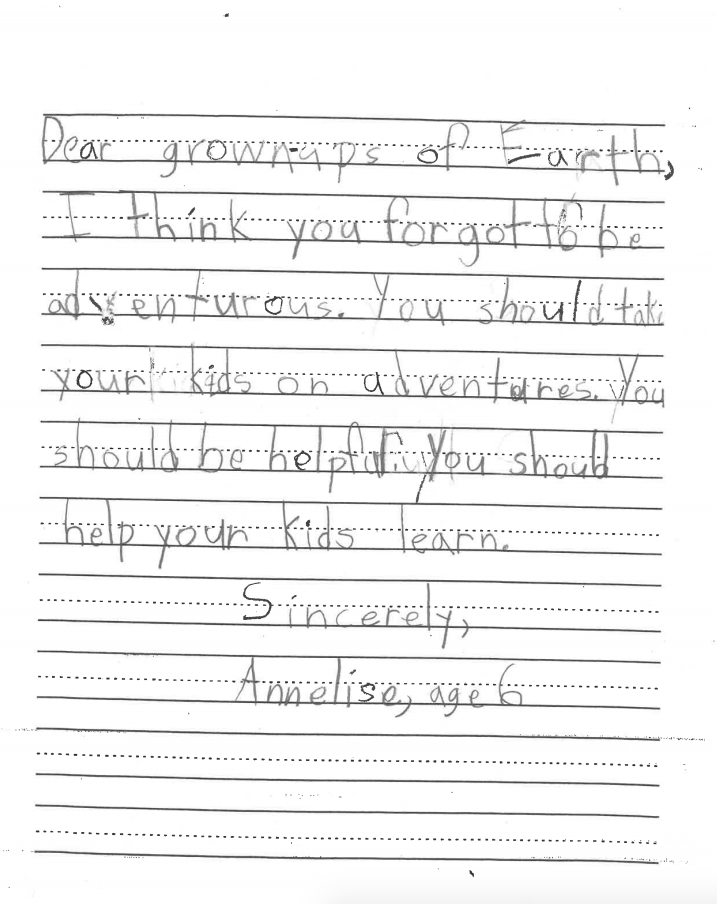 Dear grown-ups of Earth,
I think you forgot to be
adventurous. You should take
your kids on adventures. You
should be helpful. You should
help your kids learn.
Sincerely,
Annelise, age 6